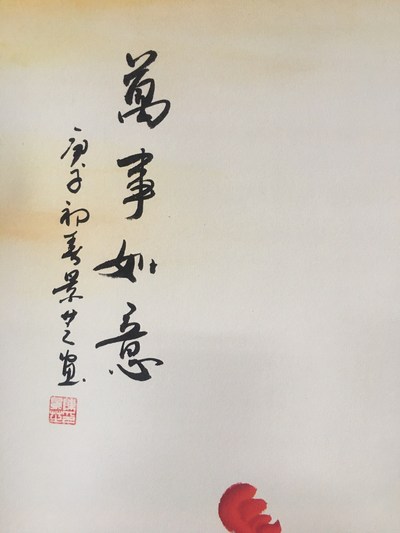 萬事如意
庚子初春景芝寫